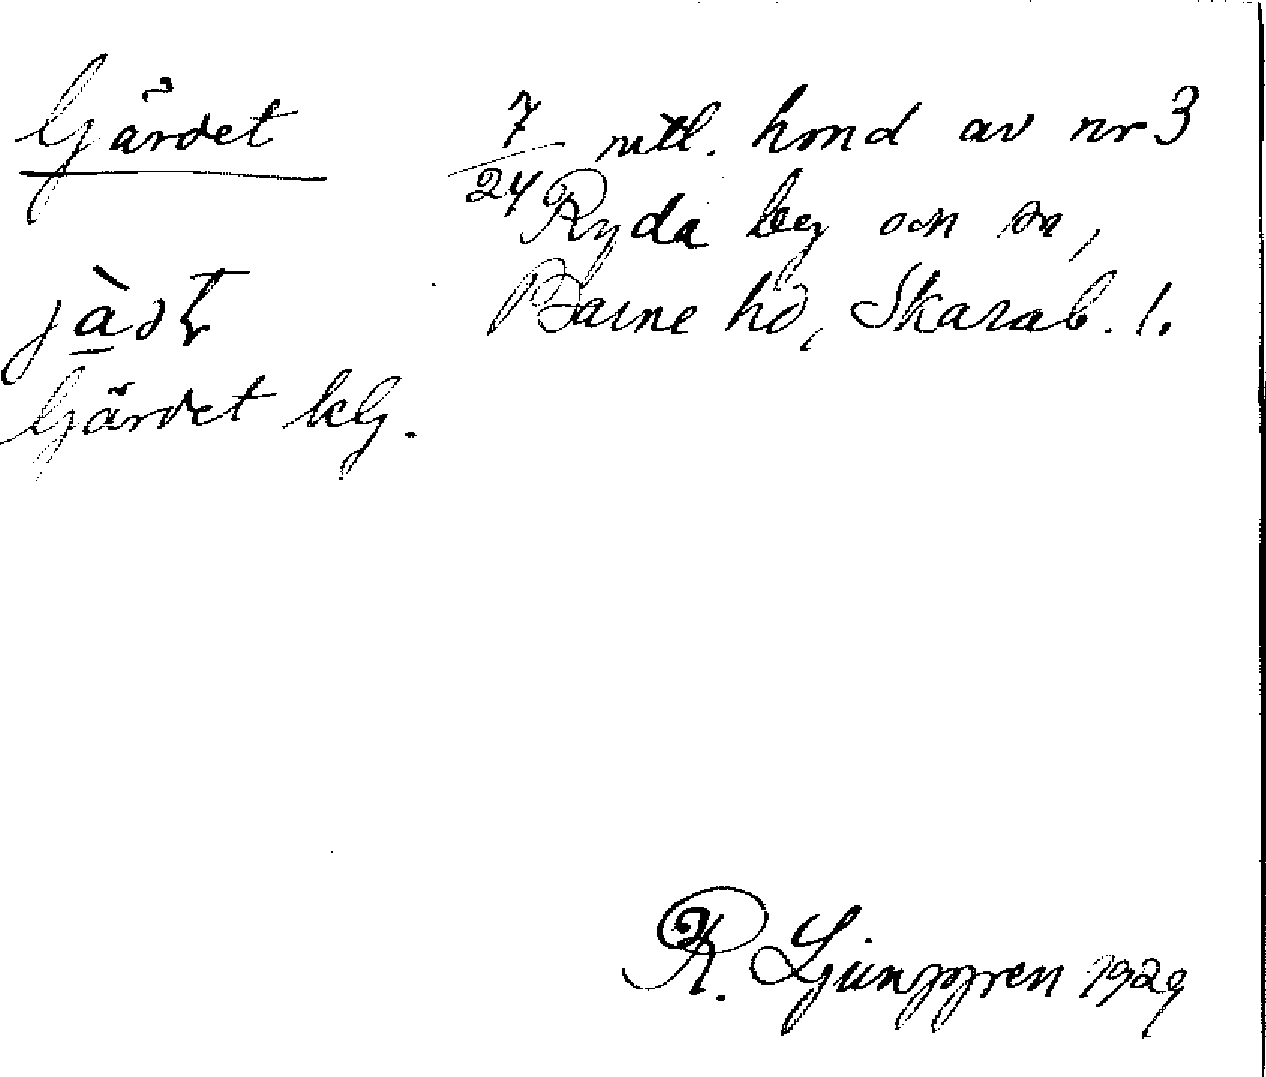 Gärdet
7/24 mtl. hmd av nr 3
Ryda by och sn,
Barne hd, Skarab. l.
Gärdet klg.
R. Ljunggren 1929